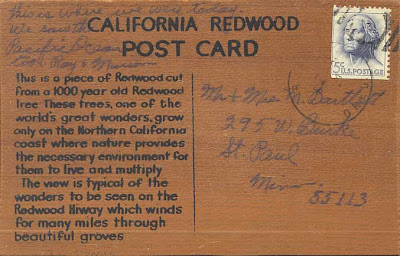 This is where we were today.
We saw the
Pacific Ocean
CALIFORNIA REDWOOD
POST CARD
5c U.S. POSTAGE
This is a piece of Redwood cut
from a 1000 year old Redwood
Tree These trees, one of the
world's great wonders, grow
only on the Northern California
coast where nature provides
the necessary environment for
them to live and multiply
The view is typical of the
wonders to be seen on the
Redwood Hiway which winds
for many miles through
beautiful groves
Mr & Mrs. M. Bartlett
295 W. Burke
St. Paul
Minn.
55113